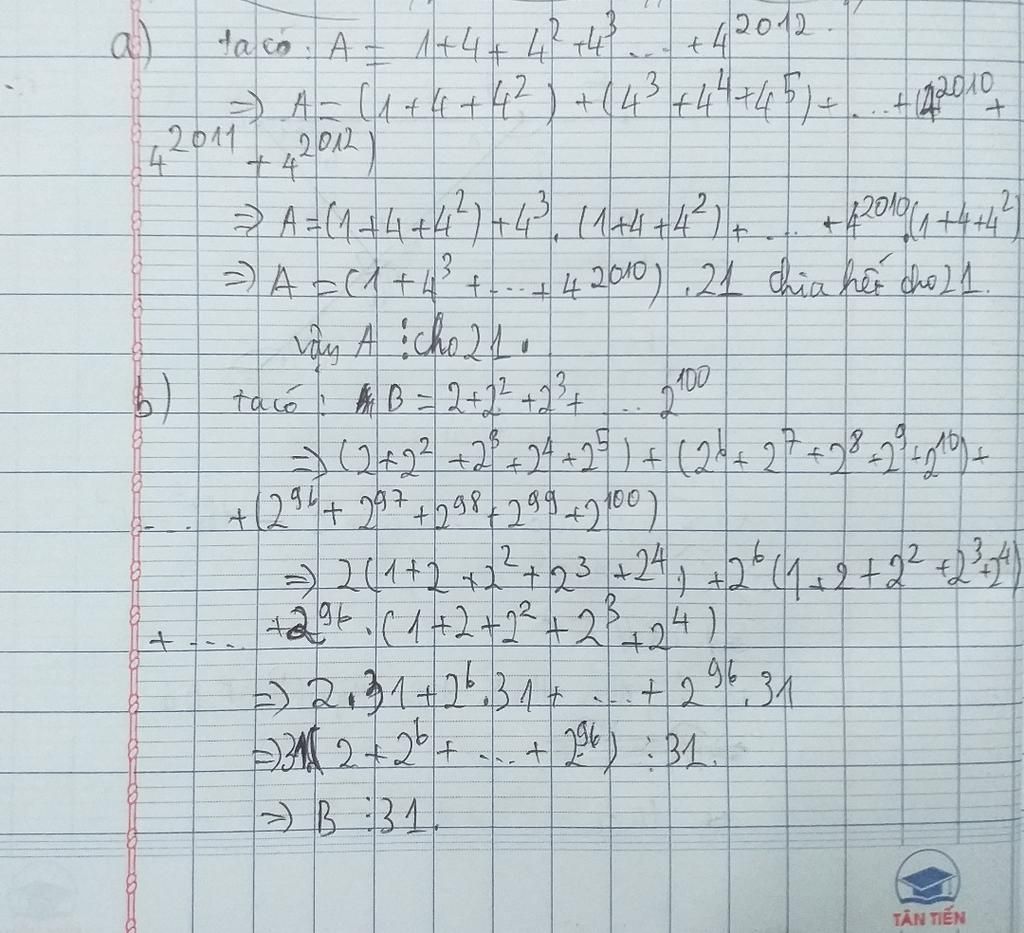 a) ta có: A = 1+4+ 4² +4³ ... +4²⁰¹².
=> A=(1+4+4²) +(4³ +4⁴+4⁵)+ ...+(4²⁰¹⁰ +
4²⁰¹¹ +4²⁰¹²)
=> A=(1+4+4²)+4³.(1+4+4²)+ ... +4²⁰¹⁰.(1+4+4²)
=> A =(1+4³ +...+ 4²⁰¹⁰) .21 chia hết cho 21.
vậy A ⋮cho 21.
b) ta có: B = 2+2² +2³+ ... 2¹⁰⁰
=> (2+2² +2³+2⁴+2⁵)+(2⁶+2⁷+2⁸+2⁹+2¹⁰)+
.... +(2⁹⁶+ 2⁹⁷+2⁹⁸+2⁹⁹+2¹⁰⁰)
=> 2(1+2 +2²+2³ +2⁴) +2⁶(1+2+2² +2³+2⁴)
+ .... +2⁹⁶.(1+2+2²+2³+2⁴)
=> 2.31+2⁶.31+ ...+ 2⁹⁶.31
=>31( 2+2⁶+ ...+ 2⁹⁶) ⋮31.
=> B ⋮31.
TÂN TIẾN